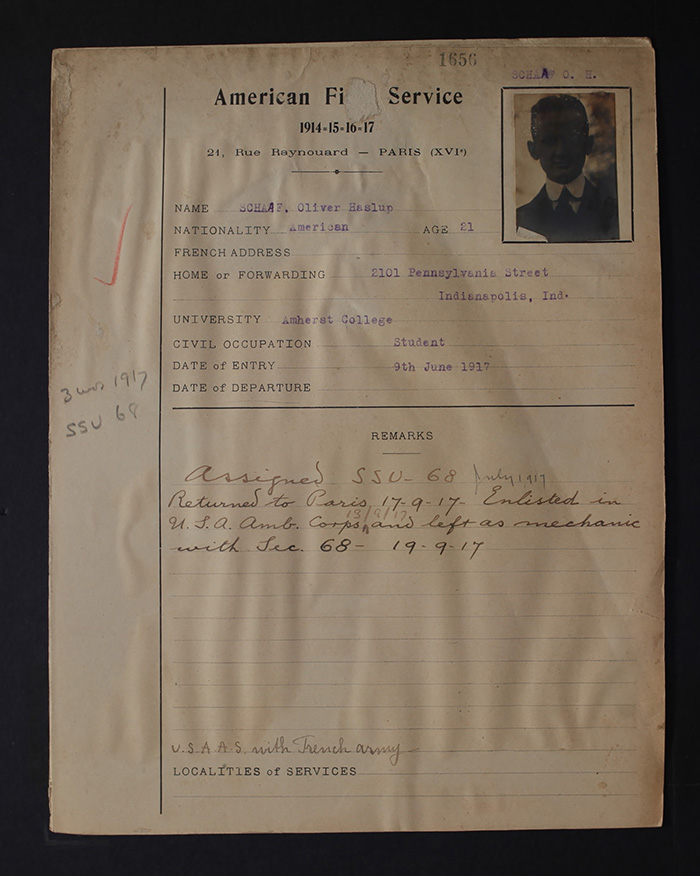 1656
SCHAAF O. H.
American Fi Service
1914-15-16-17
21, Rue Raynouard — PARIS (XVIe)
NAME SCHAAF, Oliver Haslup
NATIONALITY American AGE 21
FRENCH ADDRESS
HOME or FORWARDING 2101 Pennsylvania Street
Indianapolis, Ind.
UNIVERSITY Amherst College
CIVIL OCCUPATION Student
DATE of ENTRY 9th June 1917
DATE of DEPARTURE
3 mos 1917
SSU 68
REMARKS
Assigned SSU-68 July 1917
Returned to Paris 17-9-17- Enlisted in
18/9/17
U.S.A. Amb. Corps, and left as mechanic
with Sec. 68- 19-9-17
U.S.A.A.S. with French army
LOCALITIES of SERVICES